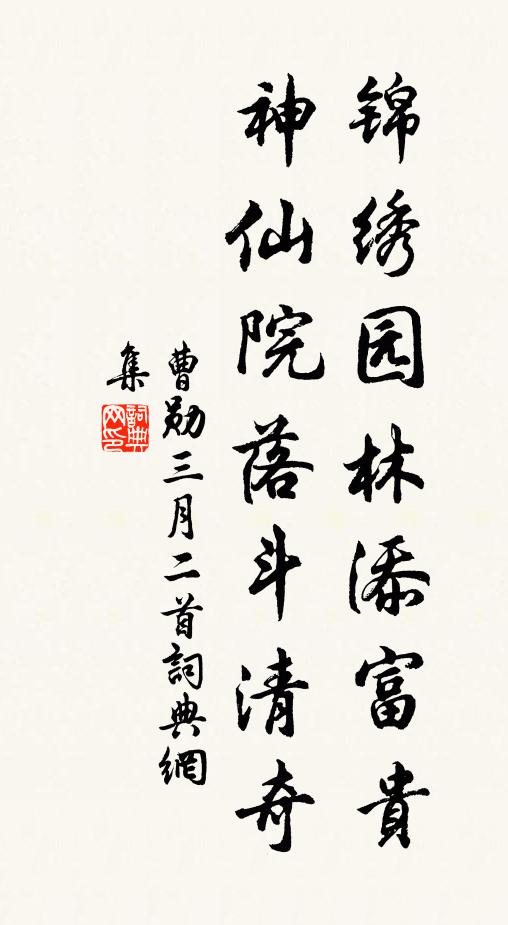 锦绣园林添富貴
神仙院落斗清奇
曹勋三月二首詞典網
集
詞典网印